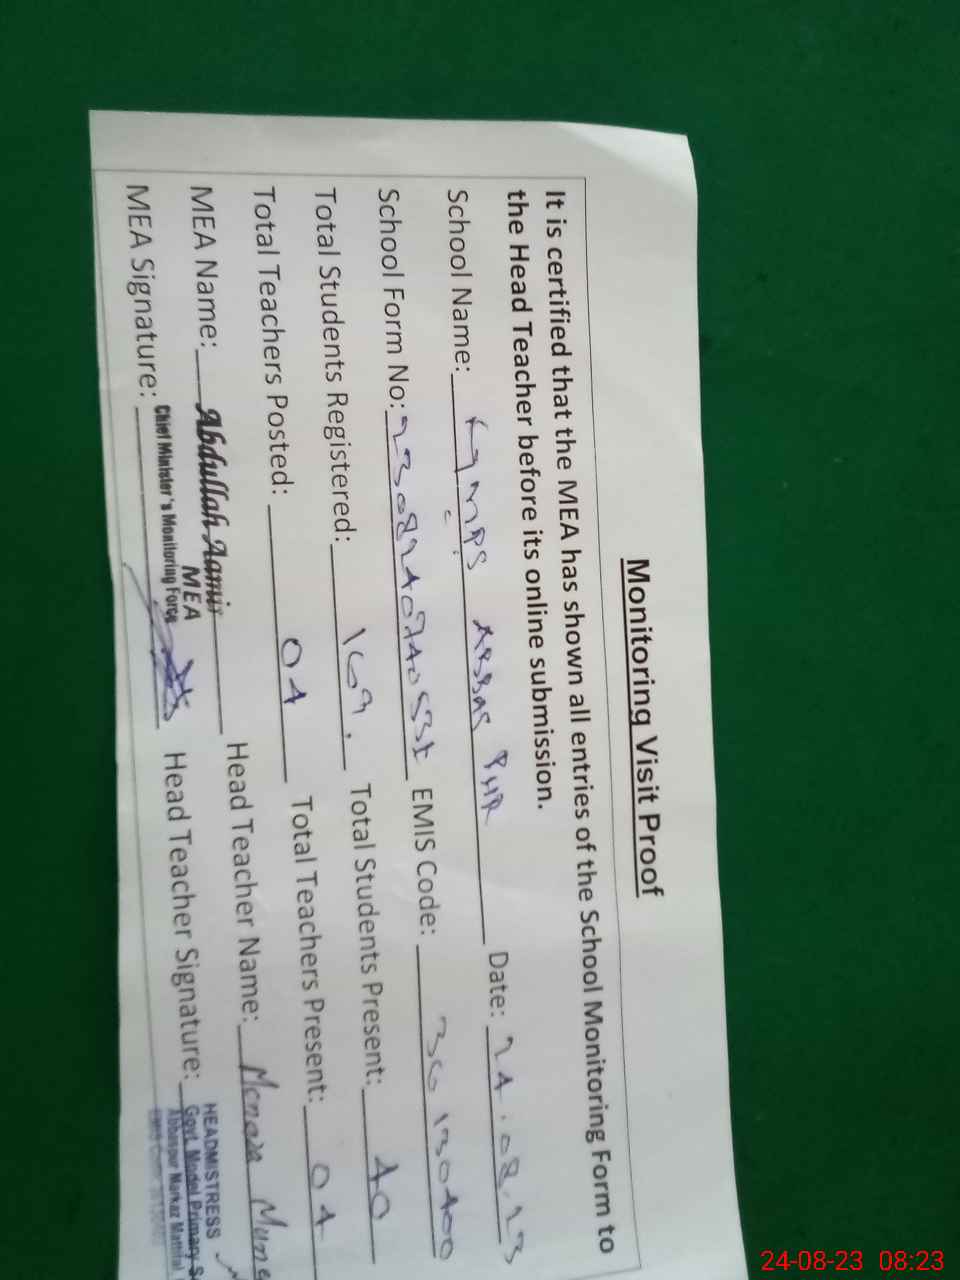 Monitoring Visit Proof
It is certified that the MEA has shown all entries of the School Monitoring Form to
the Head Teacher before its online submission.
School Name: GMPS ABBAS PUR Date: 24.08.23
School Form No: EMIS Code: 36130400
Total Students Registered: 169. Total Students Present: 40
Total Teachers Posted: 04 Total Teachers Present: 04
MEA Name: Abdullah Aamir Head Teacher Name:
MEA
MEA Signature: Chief Minister's Monitoring Force Head Teacher Signature:
HEADMISTRESS
Govt. Model Primary
Abbaspur Markaz
24-08-23 08:23